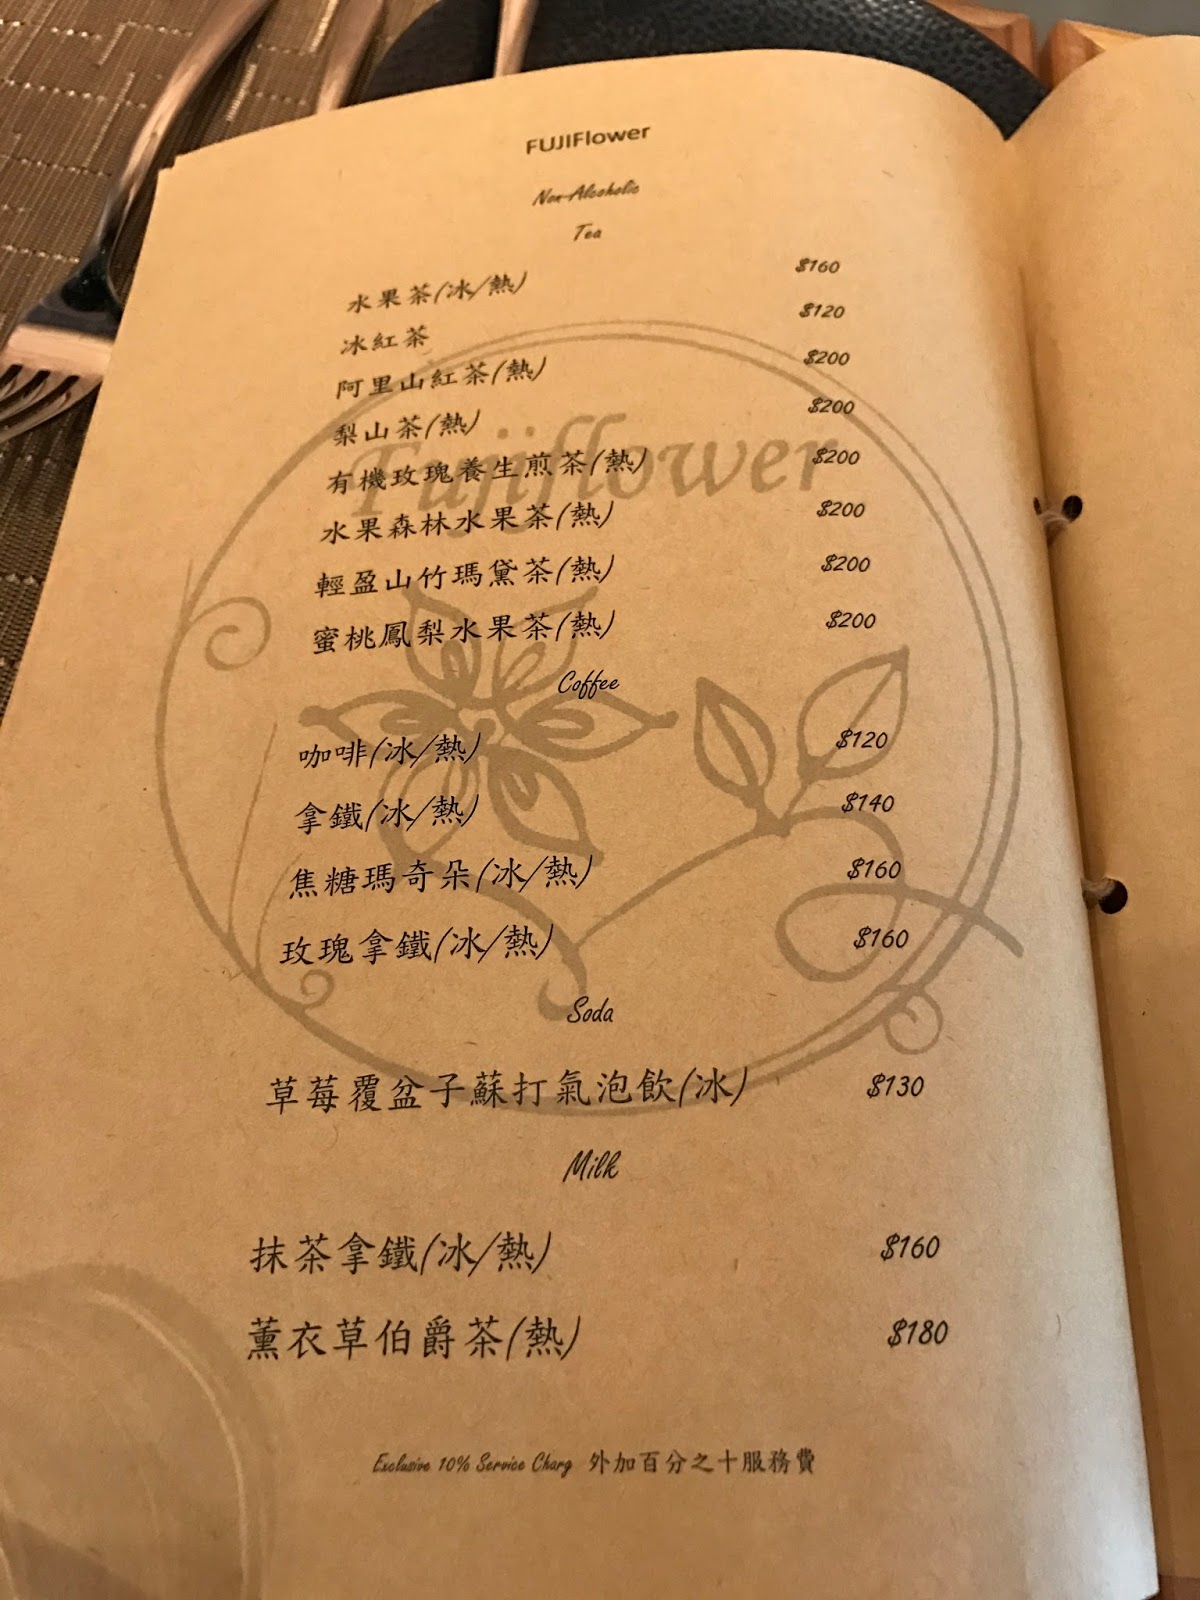 FUJIFlower
Non-Alcoholic
Tea
水果茶(冰/熱) $160
冰紅茶 $120
阿里山紅茶(熱) $200
梨山茶(熱) $200
有機玫瑰養生煎茶(熱) $200
水果森林水果茶(熱) $200
輕盈山竹瑪黛茶(熱) $200
蜜桃鳳梨水果茶(熱) $200
Fujiflower
Coffee
咖啡(冰/熱) $120
拿鐵(冰/熱) $140
焦糖瑪奇朵(冰/熱) $160
玫瑰拿鐵(冰/熱) $160
Soda
草莓覆盆子蘇打氣泡飲(冰) $130
Milk
抹茶拿鐵(冰/熱) $160
薰衣草伯爵茶(熱) $180
Exclusive 10% Service Charg 外加百分之十服務費